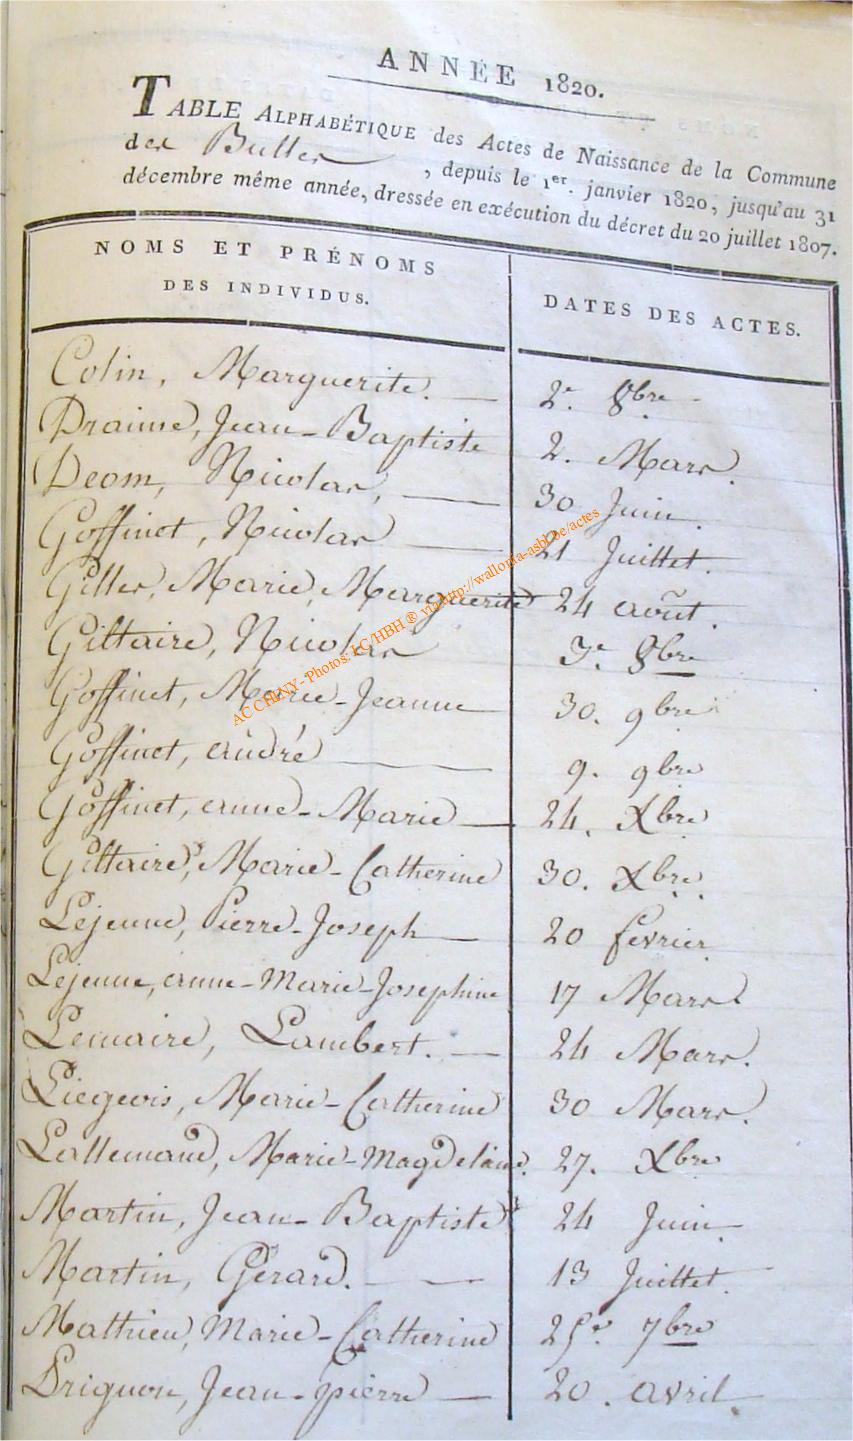 ANNÉE 1820.
TABLE ALPHABÉTIQUE des Actes de Naissance de la Commune
des Bulles, depuis le 1er. janvier 1820, jusqu'au 31
décembre même année, dressée en exécution du décret du 20 juillet 1807.
NOMS ET PRÉNOMS
DES INDIVIDUS.
DATES DES ACTES.
Colin, Marguerite. — 2e 8bre
Draime, Jean-Baptiste 2. Mars.
Deom, Nicolas, — 30 Juin.
Goffinet, Nicolas — 21 Juillet.
Gilles, Marie, Marguerite 24 août.
Giltaire, Nicolas 3e 8bre
Goffinet, Marie-Jeanne 30. 9bre
Goffinet, andré — 9. 9bre
Goffinet, anne-Marie — 24. Xbre
Giltaire, Marie-Catherine 30. Xbre.
Lejeune, Pierre-Joseph — 20 fevrier.
Lejeune, anne-Marie-Josephine 17 Mars
Lemaire, Lambert. — 24 Mars.
Liegeois, Marie-Catherine 30 Mars.
Lallemand, Marie-Magdelaine. 27. Xbre
Martin, Jean-Baptiste 24 Juin.
Martin, Gérard. — 13 Juillet.
Mathieu, Marie-Catherine 25e 7bre
Prignon, Jean-pierre — 20. avril.
ACCHINY - Photos: LC/HBH ® via http://wallonia-asbl.be/actes